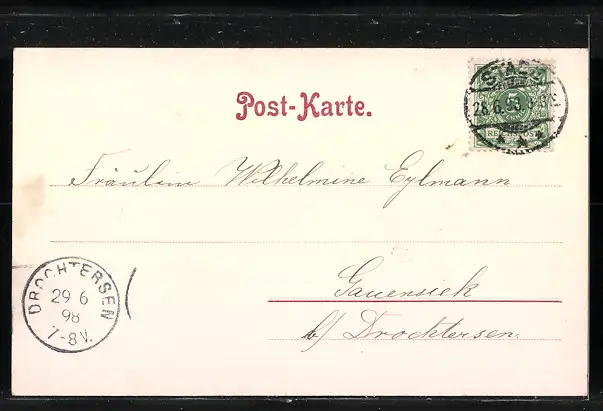 Post-Karte.
STADE
28.6.98.
5
REICHSPOST
Fräulein Wilhelmine Eylmann
Gauensiek
b/ Drochtersen.
DROCHTERSEN
29 6
98
7-8V.